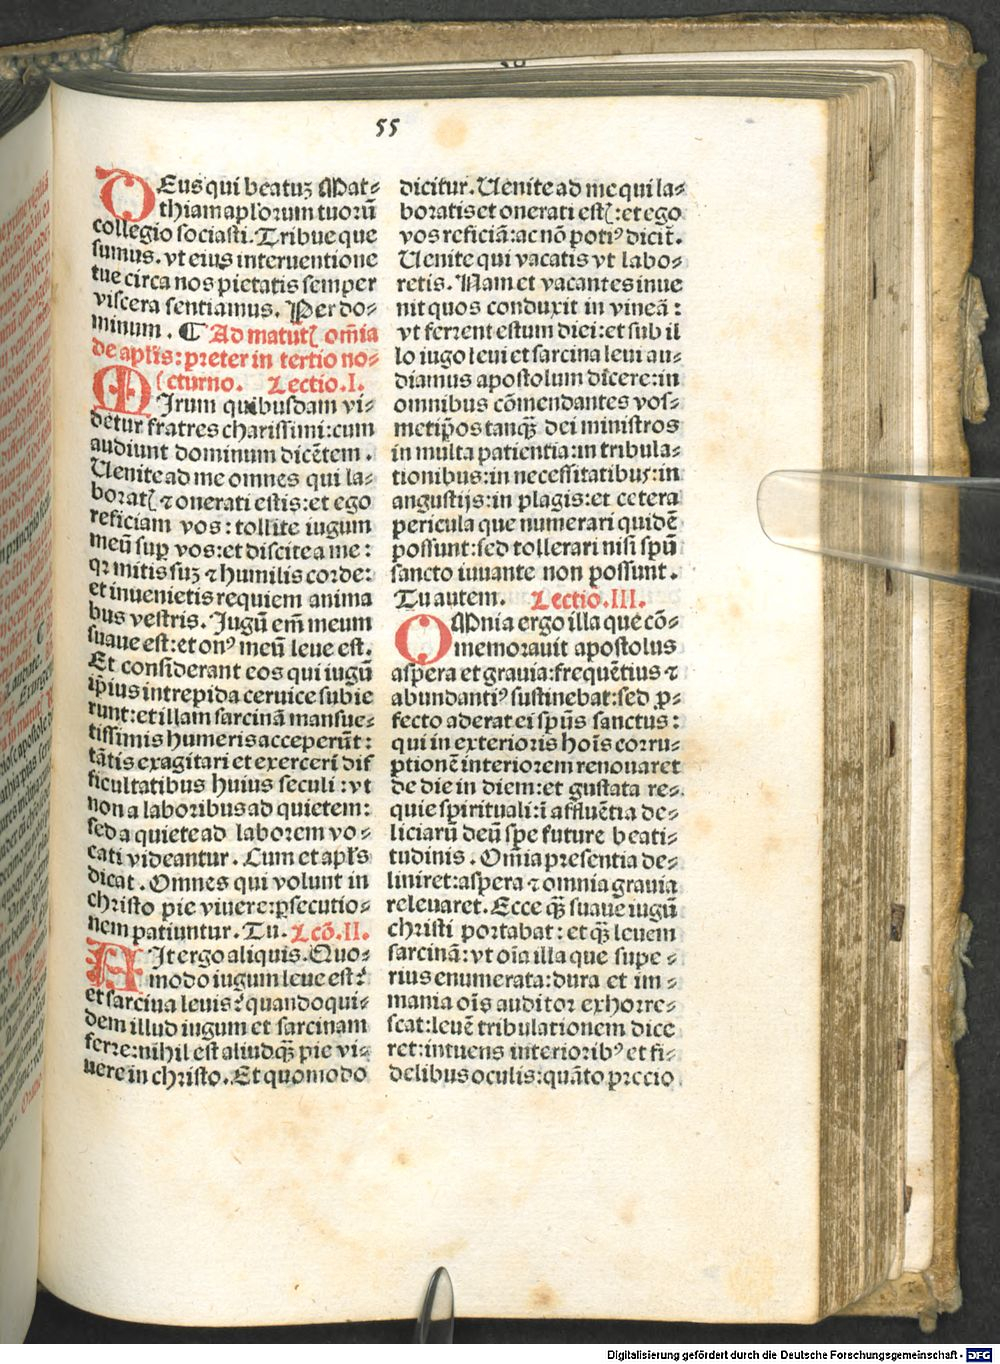 55
DEus qui beatuʒ Mat⸗
thiam apl'orum tuorū
collegio sociasti. Tribue que
sumus. vt eius interuentione
tue circa nos pietatis semper
viscera sentiamus. Per do⸗
minum. ¶ Ad matutꝭ om̄ia
de apl'is: preter in tertio no⸗
cturno. Lectio.I.
MIrum quibusdam vi⸗
detur fratres charissimi: cum
audiunt dominum dicētem.
Uenite ad me omnes qui la⸗
boratꝭ ⁊ onerati estis: et ego
reficiam vos: tollite iugum
meū sup̄ vos: et discite a me:
qꝛ mitis suʒ ⁊ humilis corde:
et inuenietis requiem anima
bus vestris. Jugū em̄ meum
suaue est: et onꝰ meū leue est.
Et considerant eos qui iugū
ip̄ius intrepida ceruice subie
runt: et illam sarcinā mansue⸗
tissimis humeris acceperūt:
tātis exagitari et exerceri dif
ficultatibus huius seculi: vt
non a laboribus ad quietem:
sed a quiete ad laborem vo⸗
cati videantur. Cum et apl's
dicat. Omnes qui volunt in
christo pie viuere: ꝑsecutio⸗
nem patiuntur. Tu. Lcō.II.
AIt ergo aliquis. Quo⸗
modo iugum leue est?
et sarcina leuis? quandoqui⸗
dem illud iugum et sarcinam
ferre: nihil est aliud qꝫ̄ pie vi⸗
uere in christo. Et quomodo
dicitur. Uenite ad me qui la⸗
boratis et onerati estꝭ: et ego
vos reficiā: ac nō potiꝰ dicit.
Uenite qui vacatis vt labo⸗
retis. Nam et vacantes inue
nit quos conduxit in vineā:
vt ferrent estum diei: et sub il
lo iugo leui et sarcina leui au⸗
diamus apostolum dicere: in
omnibus cōmendantes vos⸗
metip̄os tanqꝫ̄ dei ministros
in multa patientia: in tribula⸗
tionibus: in necessitatibus: in
angustijs: in plagis: et cetera
pericula que numerari quidē
possunt: sed tollerari nisi sp̄ū
sancto iuuante non possunt.
Tu autem. Lectio.III.
OMnia ergo illa que cō⸗
memorauit apostolus
aspera et grauia: frequētius ⁊
abundantiꝰ sustinebat: sed ꝑ⸗
fecto aderat ei sp̄ūs sanctus:
qui in exterioris hoīs corru⸗
ptionē interiorem renouaret
de die in diem: et gustata re⸗
quie spirituali: ī affluētia de⸗
liciarū deū spe future beati⸗
tudinis. Om̄ia presentia de⸗
liniret: aspera ⁊ omnia grauia
releuaret. Ecce qꝫ̄ suaue iugū
christi portabat: et qꝫ̄ leuem
sarcinā: vt oīa illa que supe⸗
rius enumerata: dura et im⸗
mania oīs auditor exhorre⸗
scat: leuē tribulationem dice
ret: intuens interioribꝰ et fi⸗
delibus oculis: quāto precio
Digitalisierung gefördert durch die Deutsche Forschungsgemeinschaft - DFG